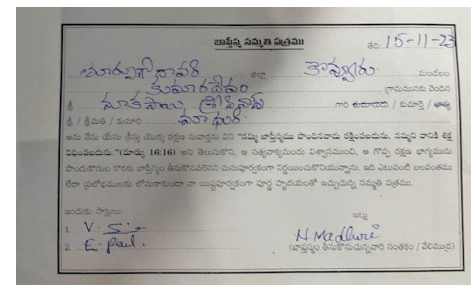 బాప్తిస్మ సమ్మతి పత్రము
తేది 15-11-23
తూర్పుగోదావరి జిల్లా కొవ్వూరు మండలం
కుమారదేవం గ్రామమునకు చెందిన
శ్రీ గారి కుమారుడు / కుమార్తె / భార్య
శ్రీ / శ్రీమతి / కుమారి మాధురి
అను నేను యేసు క్రీస్తు యొక్క రక్షణ సువార్తను విని "నమ్మి బాప్తిస్మము పొందినవాడు రక్షింపబడును. నమ్మని వానికి శిక్ష
విధింపబడును."(మార్కు 16:16) అని తెలుసుకొని, ఆ సత్యవాక్యమందు విశ్వాసముంచి, ఆ గొప్ప రక్షణ భాగ్యమును
పొందుకొనుట కొరకు బాప్తిస్మం తీసుకొనవలెనని మనుపూర్వకంగా నిర్ణయించుకొనియున్నాను. ఇది ఎటువంటి బలవంతము
లేదా ప్రలోభములకు లోనుకాకుండా నా యిష్టపూర్వకంగా పూర్ణ హృదయంతో ఇచ్చుచున్న సమ్మతి పత్రము.
ఇందుకు సాక్షులు
1. V. S.
2. E. Paul.
ఇట్లు
N. Madhuri
(బాప్తిస్మం తీసుకొనుచున్నవారి సంతకం / వేలిముద్ర)